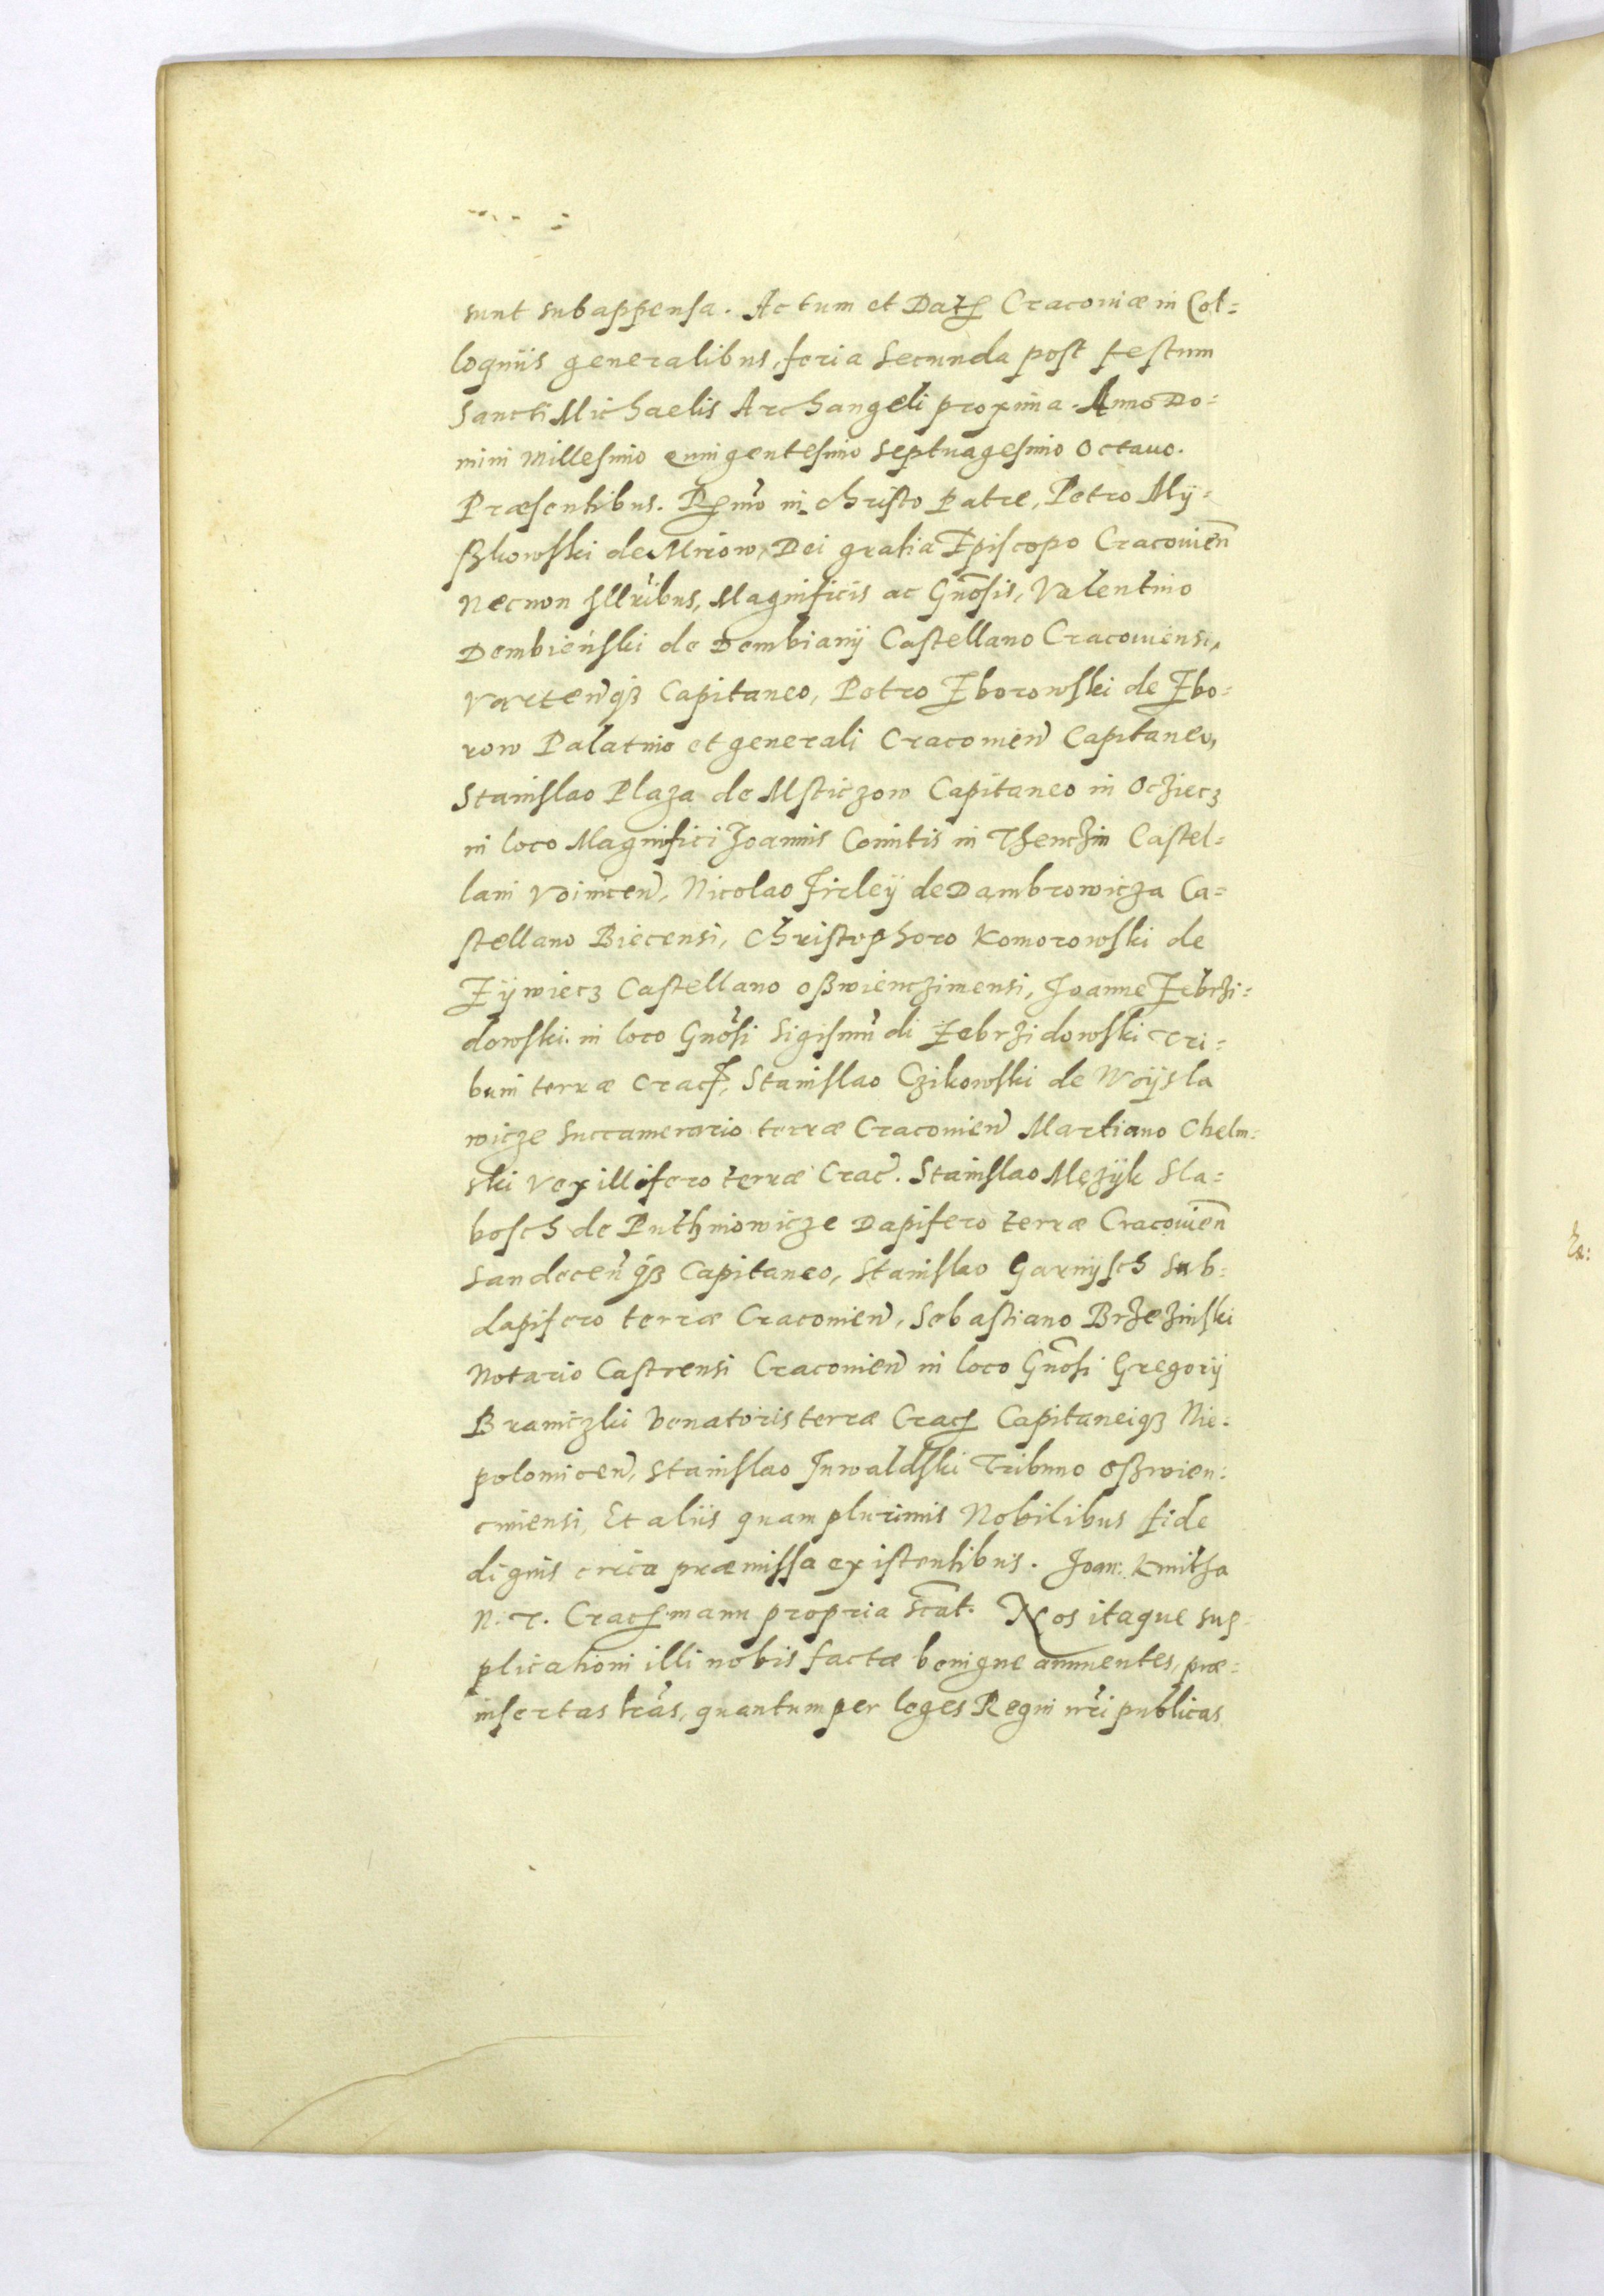 sunt subappensa. Actum et Dat Cracoviæ in Col=
loquiis generalibus, feria secunda post festum
Sancti Michaelis Archangeli proxima. Anno Do=
mini Millesimo quingentesimo septuagesimo octauo.
Præsentibus. Rmo in christo patre, Petro Mÿ=
ßkowski de Mirow, Dei gratia Episcopo Cracouien̄
Necnon Jllribus, Magnificis ac Gn̄osis, Valentino
Dembieński de Dembianÿ Castellano Cracouiensi,
Vartenqꝫ Capitaneo, Petro Zborowski de Zbo=
row Palatino et generali Cracouien Capitaneo,
Stanislao Plaza de Msticzow Capitaneo in Ocziecz
in loco Magnifici Joannis Comitis in Thenczin Castel=
lani Voinicen, Nicolao Firleÿ de Dambrowicza Ca=
stellano Biecensi, Christophoro Komorowski de
Zÿwiecz Castellano oßwienczimensi, Joanne Zebrzi=
dowski. in loco Gnosi Sigismundi Zebrzidowski Tri=
buni terræ Crac, Stanislao Czikowski de Woÿsla
wicze Succamerario terræ Cracouien Martiano Chelm=
ski Vexillifero terræ Crac. Stanislao Męzÿk Sla=
bosch de Puthniowicze Dapifero terræ Cracouien̄
Sandecenqꝫ Capitaneo, Stanislao Garnÿsch Sub=
dapifero terræ Cracouien, Sebastiano Brzezinski
Notario Castrensi Cracouien in loco Gn̄osi Gregorÿ
Braniczki Venatoris terræ Crac Capitaneiqꝫ Nie=
polomicen, Stanislao Jnwaldski Tribuno oßwien=
cimensi, Et aliis quam plurimis Nobilibus fide
dignis circa præmissa existentibus. Joan: Kmitha
N. T. Crac manu propria sc̄at. Nos itaque sup=
plicationi illi nobis factæ benigne annuentes, præ=
insertas lras, quantum per leges Regni nri publicas